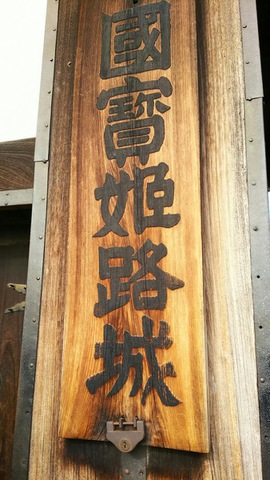 國寳姫路城